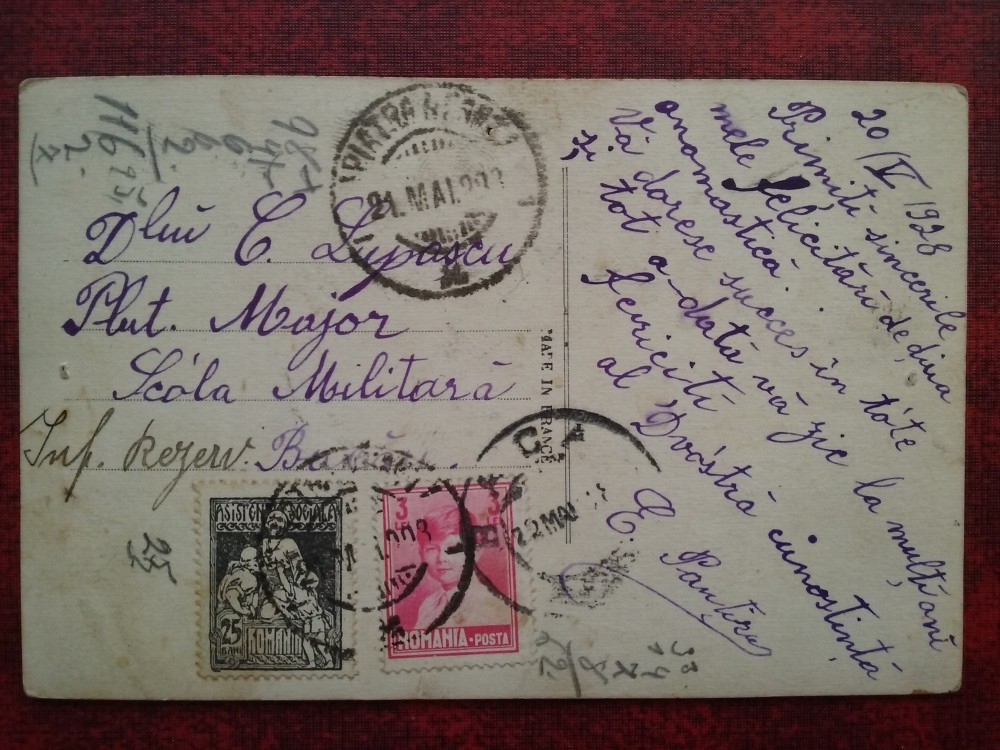 20/V 1928
Primiți sincerile
mele felicitări de diua
onomastică.
Vă doresc succes în tóte
și tot a-dată vă zic la mulți ani
fericiți
al Dvóstră cunostință
C.
PIATRA NEAMȚ
21. MAI. 928
Dlui C. Lupascu
Plut. Major
Scóla Militară
Inf. Rezerv.
MADE IN FRANCE
22 MAI
ASISTENȚA SOCIALA
25
BANI
ROMANIA
3
3
ROMANIA·POSTA
116
25